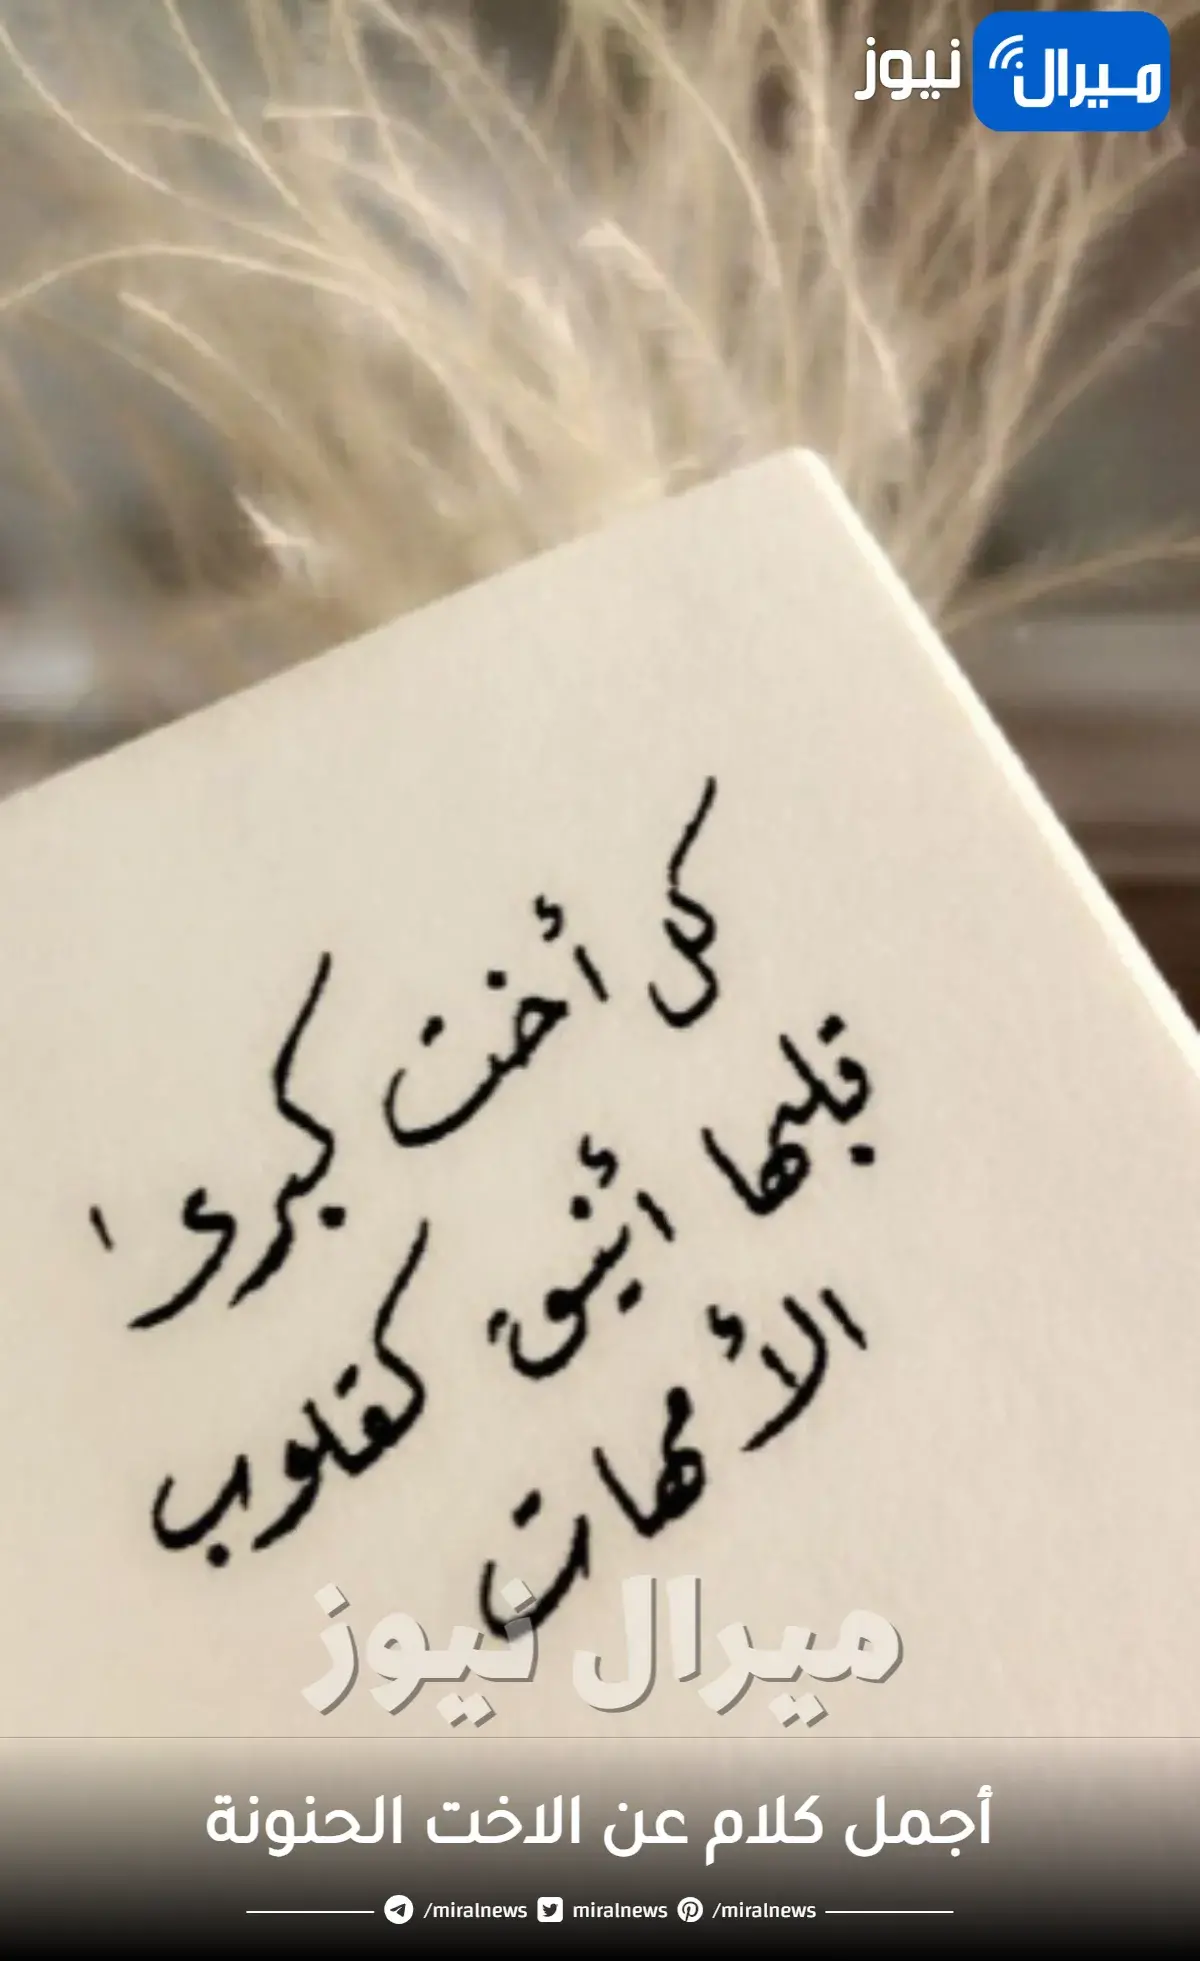 ميرال نيوز
كل أخت كبرى ا
قلبها أنيقٌ كقلوب
الأمهات
ميرال نيوز
أجمل كلام عن الاخت الحنونة
/miralnews miralnews /miralnews